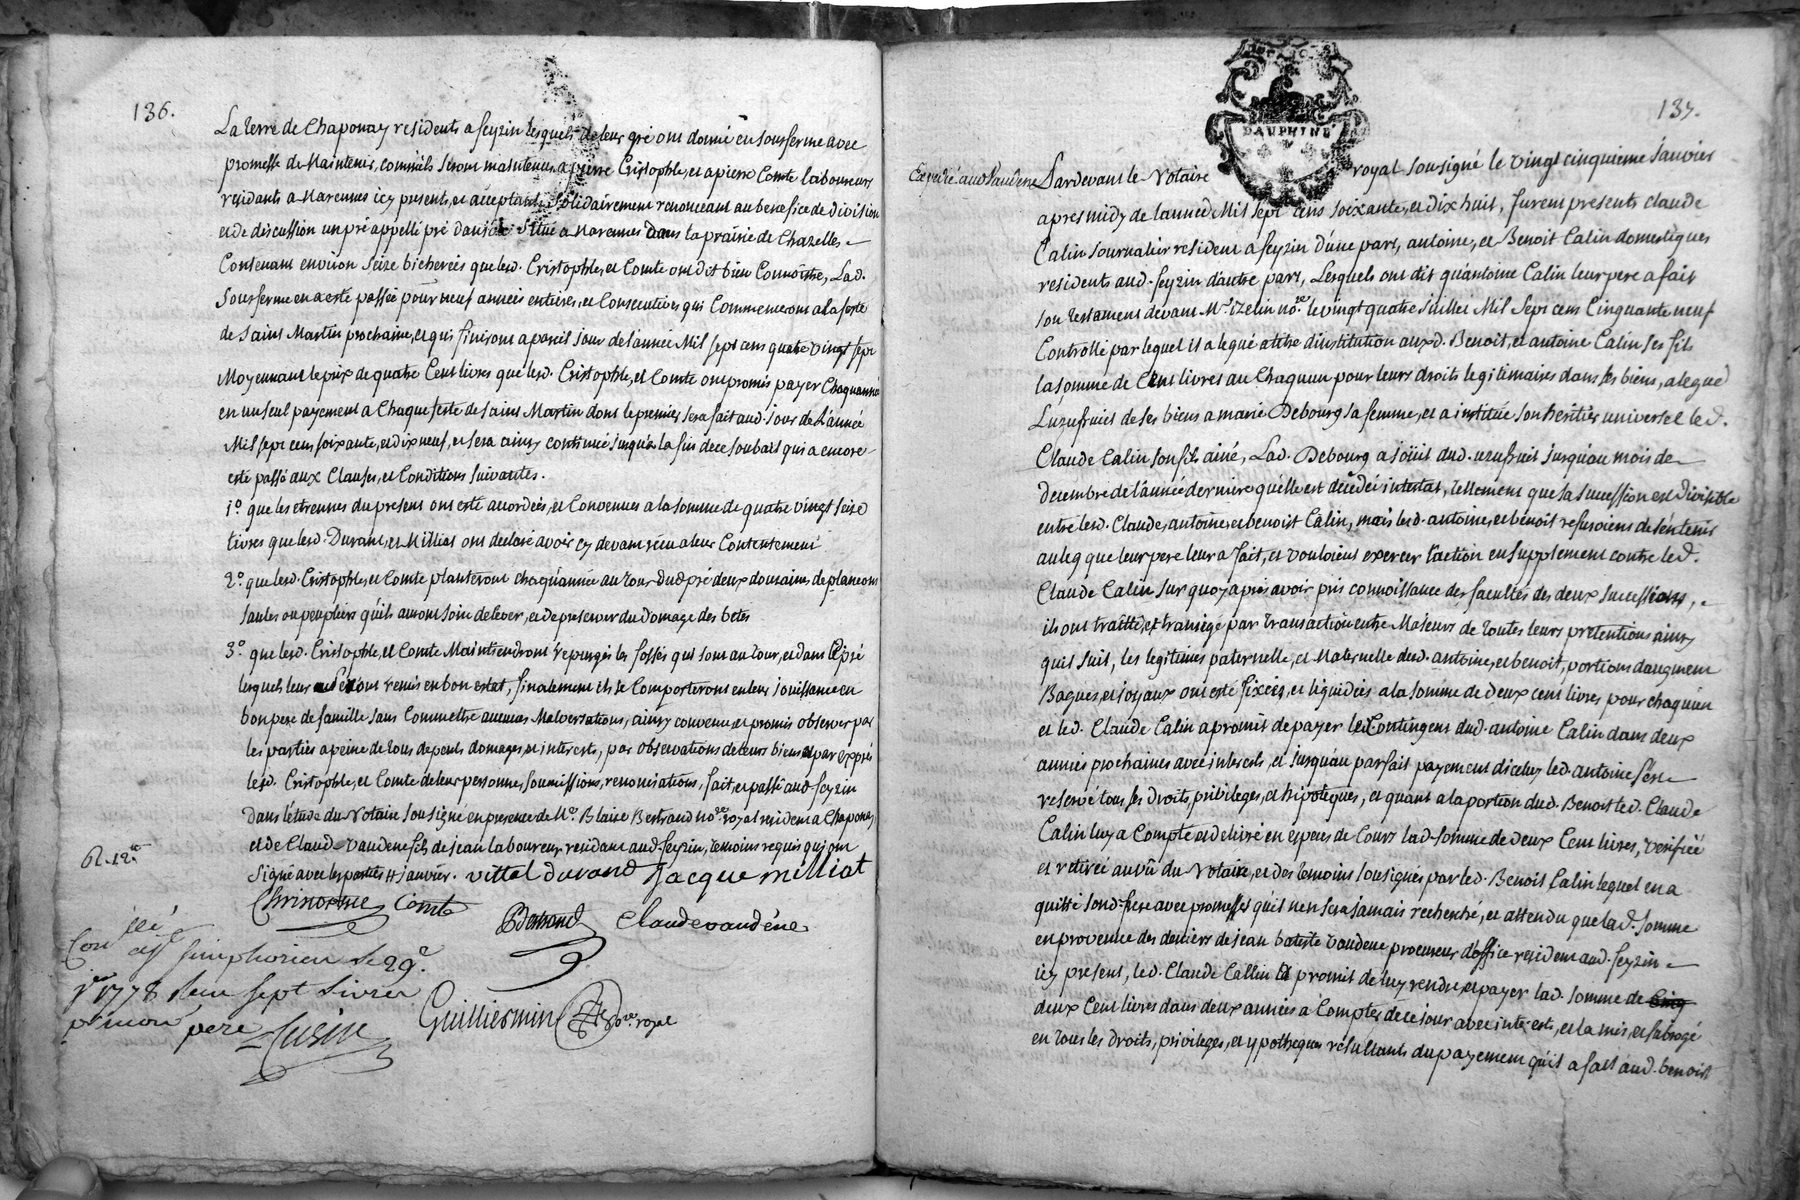 136.
La terre de Chaponay residents a feyzin lesquels de leur gré ont donné en sousferme avec
promesse de Maintenir, comm'ils seront maintenus a pierre Cristophle, et a pierre Comte laboureurs
residants a Marennes icy presents, et aceptants solidairement renonceant au benefice de division
et de discussion un pré appellé pré situé a Marennes dans la prairie de Chazelles
Contenant environ seize bicherées que lesd. Cristophle, et Comte ont dit bien Connoitre, Lad.
Sousferme en a esté passée pour neuf années entieres, et Consecutives qui Commenceront a la feste
de Saint Martin prochaine, et qui finiront a pareil jour de l'année Mil sept cent quatre vingt sept
Moyennant le prix de quatre Cent livres que lesd. Cristophle, et Comte ont promis payer Chaqu'année
en un seul payement a Chaque feste de saint Martin dont le premier sera fait aud. jour de L'année
Mil sept cent soixante, et dix neuf, et sera ainsy continué jusqu'a la fin de ce soubail qui a encore
esté passé aux Clauses, et Conditions suivantes.
1.º que les etrennes du present ont esté accordées, et Convenues a la somme de quatre vingt seize
livres que lesd. Durand, et Milliat ont declaré avoir cy devant réceu a leur Contentement
2.º que lesd. Cristophle, et Comte planteront chaqu'année au tour dud pré deux douzaines de plancons
saules ou peupliers qu'ils auront soin de lever, et de preserver du domage des betes
3.º que lesd. Cristophle, et Comte Maintiendront repurgés les fossés qui sont au tour, et dans le pré
lesquels leur seront remis en bon estat, finalement ils se Comporteront en leur jouissance en
bon pere de famille sans Commettre aucunes Malversations, ainsy convenu, et promis observer par
les parties a peine de tous depents domages, et interests, par obligations de leurs biens et par exprés
lesd. Cristophle, et Comte de leur personne, soumissions, renonciations, fait, et passé aud feyzin
dans l'étude du Notaire sousigné en presence de Mº. Blaise Bertrand no.re royal resident a Chaponay
et de Claude vaudene fils de jean laboureur residant aud. feyzin, temoins requis qui ont
signé avec les parties 11 janvier. vittal durand Jacque milliat
R. 12.
Christophle Comte
Bertrand Claude vaudéne
Con llé
a st simphorien le 29.e
j.er 1778 Reçu sept Livres
pere Cusin
Guilliermin no.re royal
137.
DAUPHINÉ
Expedié aud Vaudene
Pardevant le Notaire royal sousigné le vingt cinquieme janvier
apres midy de l'année Mil sept cens soixante, et dix huit, furent presents claude
Calin journalier resident a feyzin d'une part, antoine, et Benoit Calin domestiques
resident aud. feyzin d'autre part, Lesquels ont dit qu'antoine Calin leur pere a fait
son testament devant Mº. Izelin no.re le vingt quatre juillet Mil sept cent Cinquante neuf
Controllé par lequel il a legué a titre d'institution auxd. Benoit, et antoine Calin ses fils
la somme de Cent livres au Chaqu'un pour leurs droits legitimaires dans ses biens, a legué
L'uzufruit de ses biens a marie Debourg sa femme, et a institué son heritier universel led.
Claude Calin son fils ainé, Lad. Debourg a joüit dud. uzufruit jusqu'au mois de
decembre de l'année derniere qu'elle est décedée intestat, tellement que sa succession est divisible
entre lesd. Claude, antoine, et benoist Calin, mais lesd. antoine, et benoit refusoient de s'en tenir
au leg que leur pere leur a fait, et vouloient exercer l'action en supplement contre led.
Claude Calin sur quoy après avoir pris connoissance des facultés des deux successions,
ils ont traitté, et transigé par transaction entre Majeurs de toutes leurs pretentions ainsy
que suit, les legitimes paternelle, et Maternelle dud. antoine, et benoit, portions d'augment
Bagues, et joyaux ont esté fixées, et liquidées a la somme de deux cent livres pour chaqu'un
et led. Claude Calin a promis de payer le Contingent dud. antoine Calin dans deux
années prochaines avec interests, et jusqu'au parfait payement d'iceluy led. antoine s'est
reservé tous ses droits, privileges, et hipoteques, et quant a la portion dud. Benoit led. Claude
Calin luy a Compté et delivré en especes de Cours lad. somme de deux Cent livres, verifiée
et retirée au vû du Notaire, et des temoins sousignés par led. Benoit Calin lequel en a
quitté sond. frere avec promesses qu'il n'en sera jamais recherché, et attendu que lad. somme
en provenue des deniers de jean batiste Vaudene procureur d'office resident aud. feyzin
icy present, led. Claude Callin a promis de luy rendre, et payer lad. somme de cinq
deux Cent livres dans deux années a Compter de ce jour avec interests, et l'a mis, et subrogé
en tous les droits, privileges, et ypotheques résultants du payement qu'il a fait aud. benoist